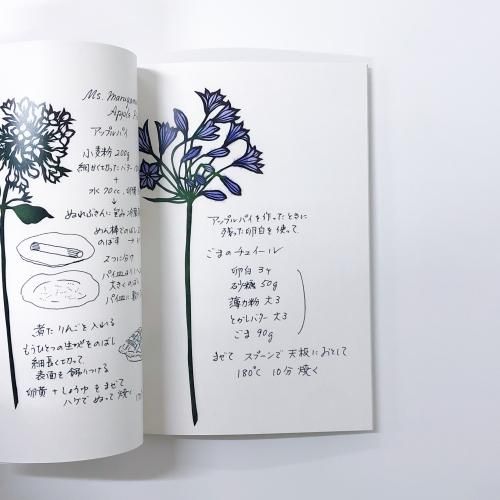 Ms. Maruyama
Apple
アップルパイ
小麦粉 200g
細かく切ったバター
+
水 70cc.
ぬれぶきんに包み
めん棒でのばし
のばす →
2つに分け
パイ皿より
大きくのばし
パイ皿に
煮たりんごを入れる
もうひとつの生地をのばし
細長く切って
表面を飾りつける
卵黄 + しょうゆ をまぜて
ハケでぬって 焼く
アップルパイを作ったときに
残った卵白を使って
ごまのチュイール
卵白 3ヶ
砂糖 50g
薄力粉 大3
とかしバター 大3
ごま 90g
まぜて スプーンで天板におとして
180℃ 10分 焼く